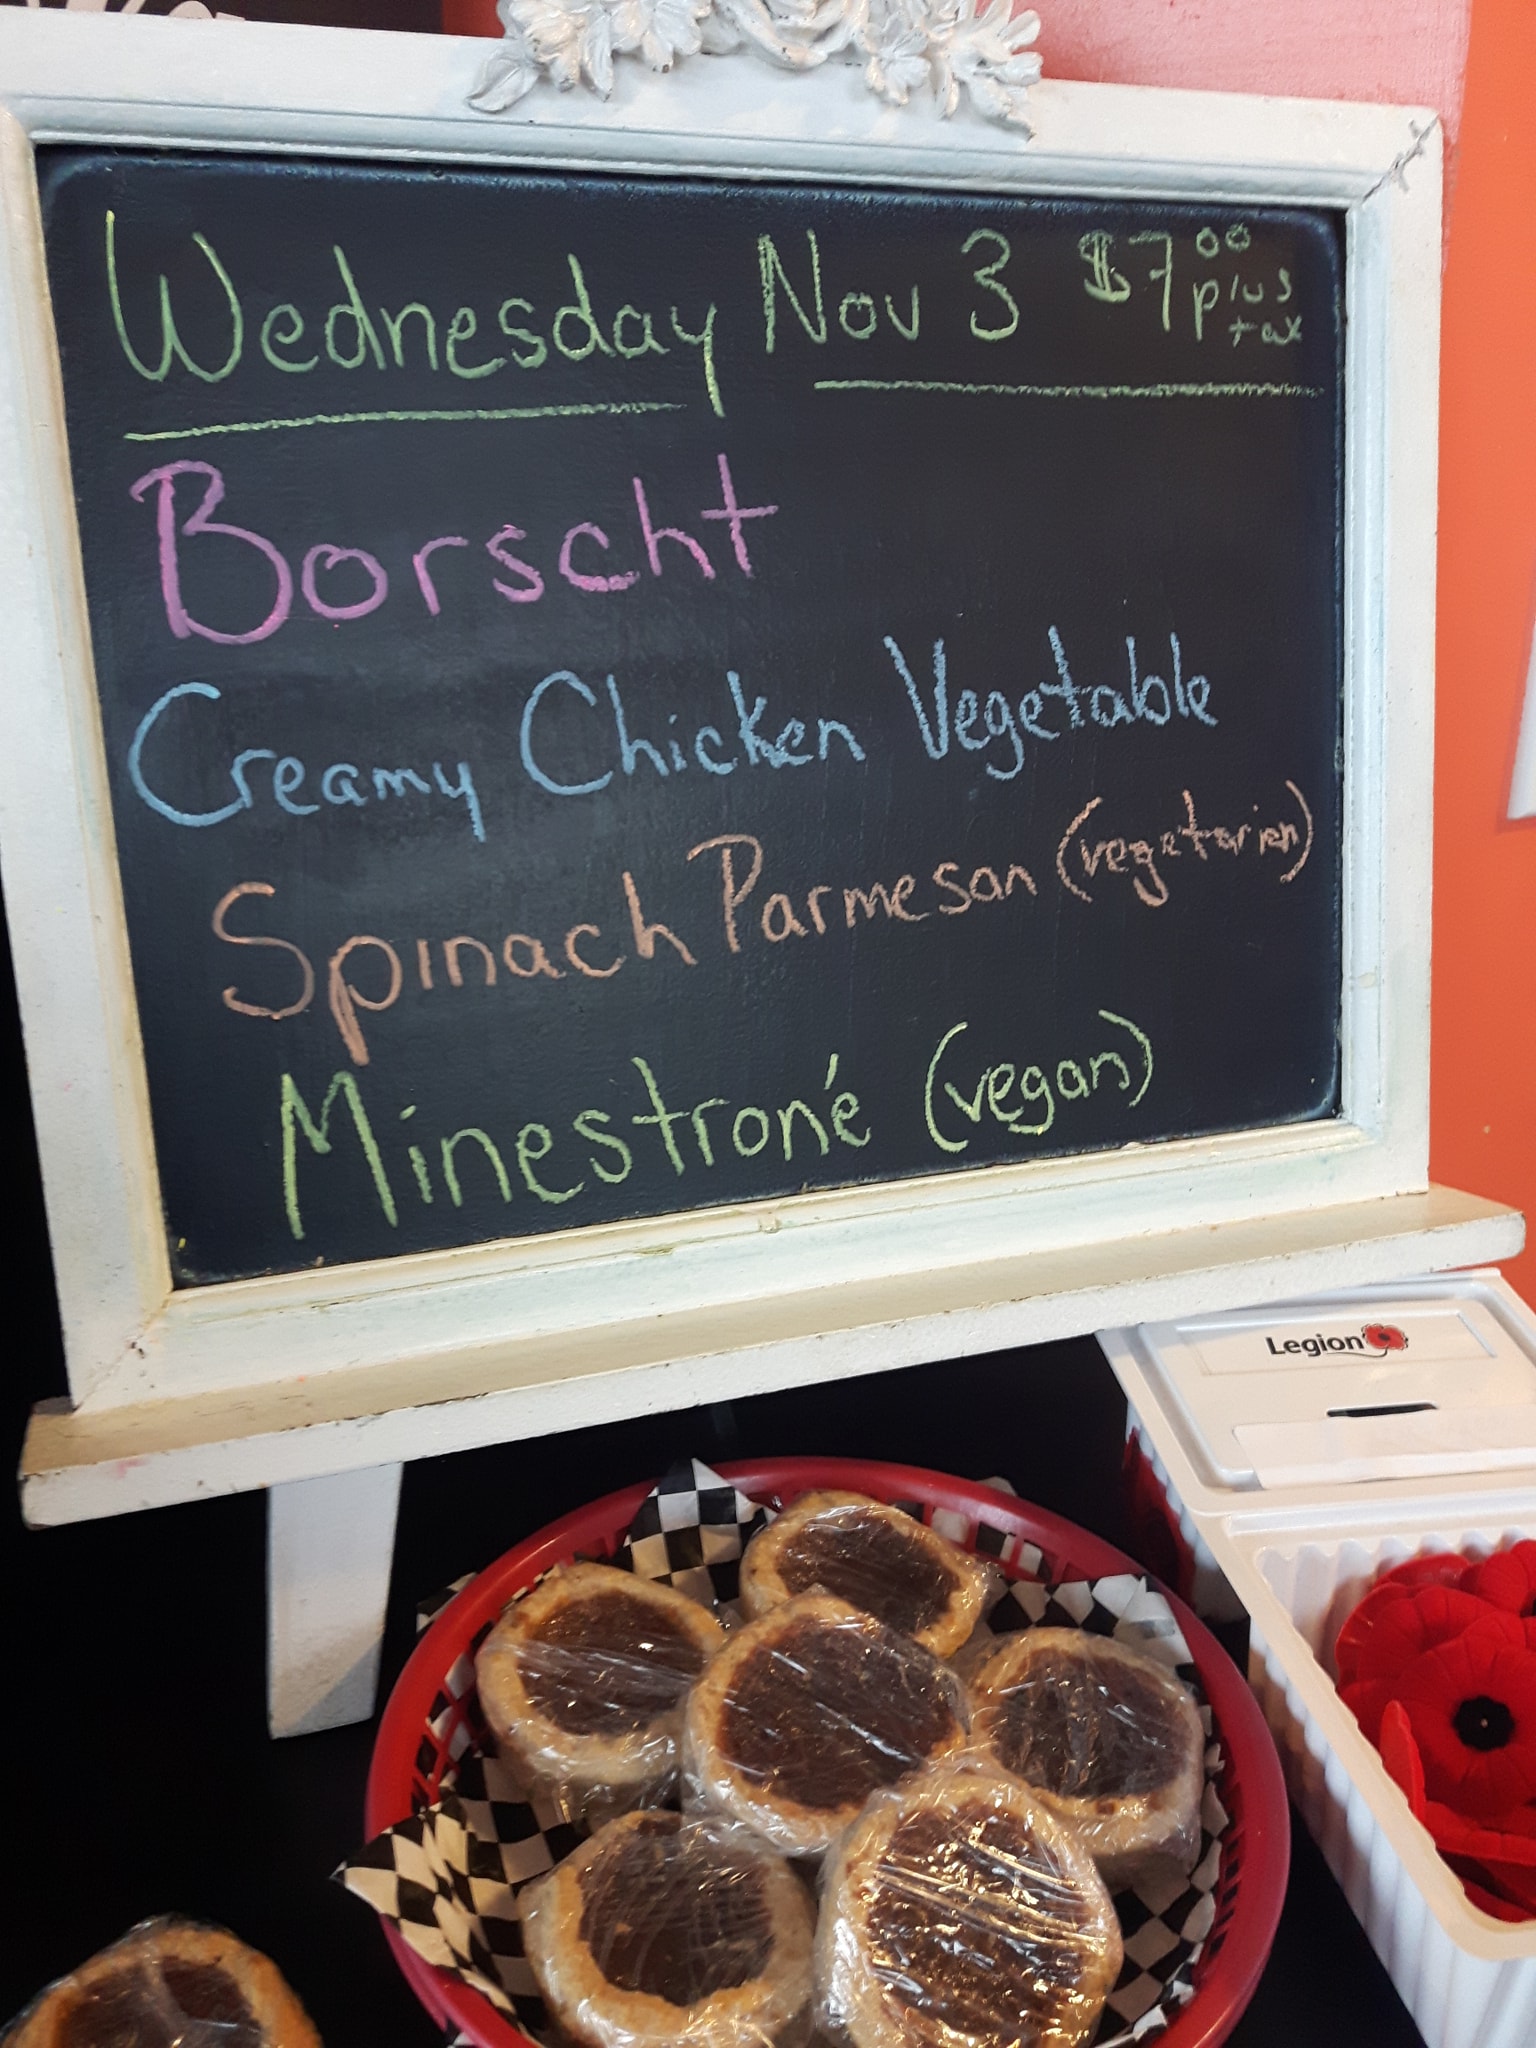 Wednesday Nov 3 $7.00 plus tax
Borscht
Creamy Chicken Vegetable
Spinach Parmesan (vegetarian)
Minestroné (vegan)
Legion